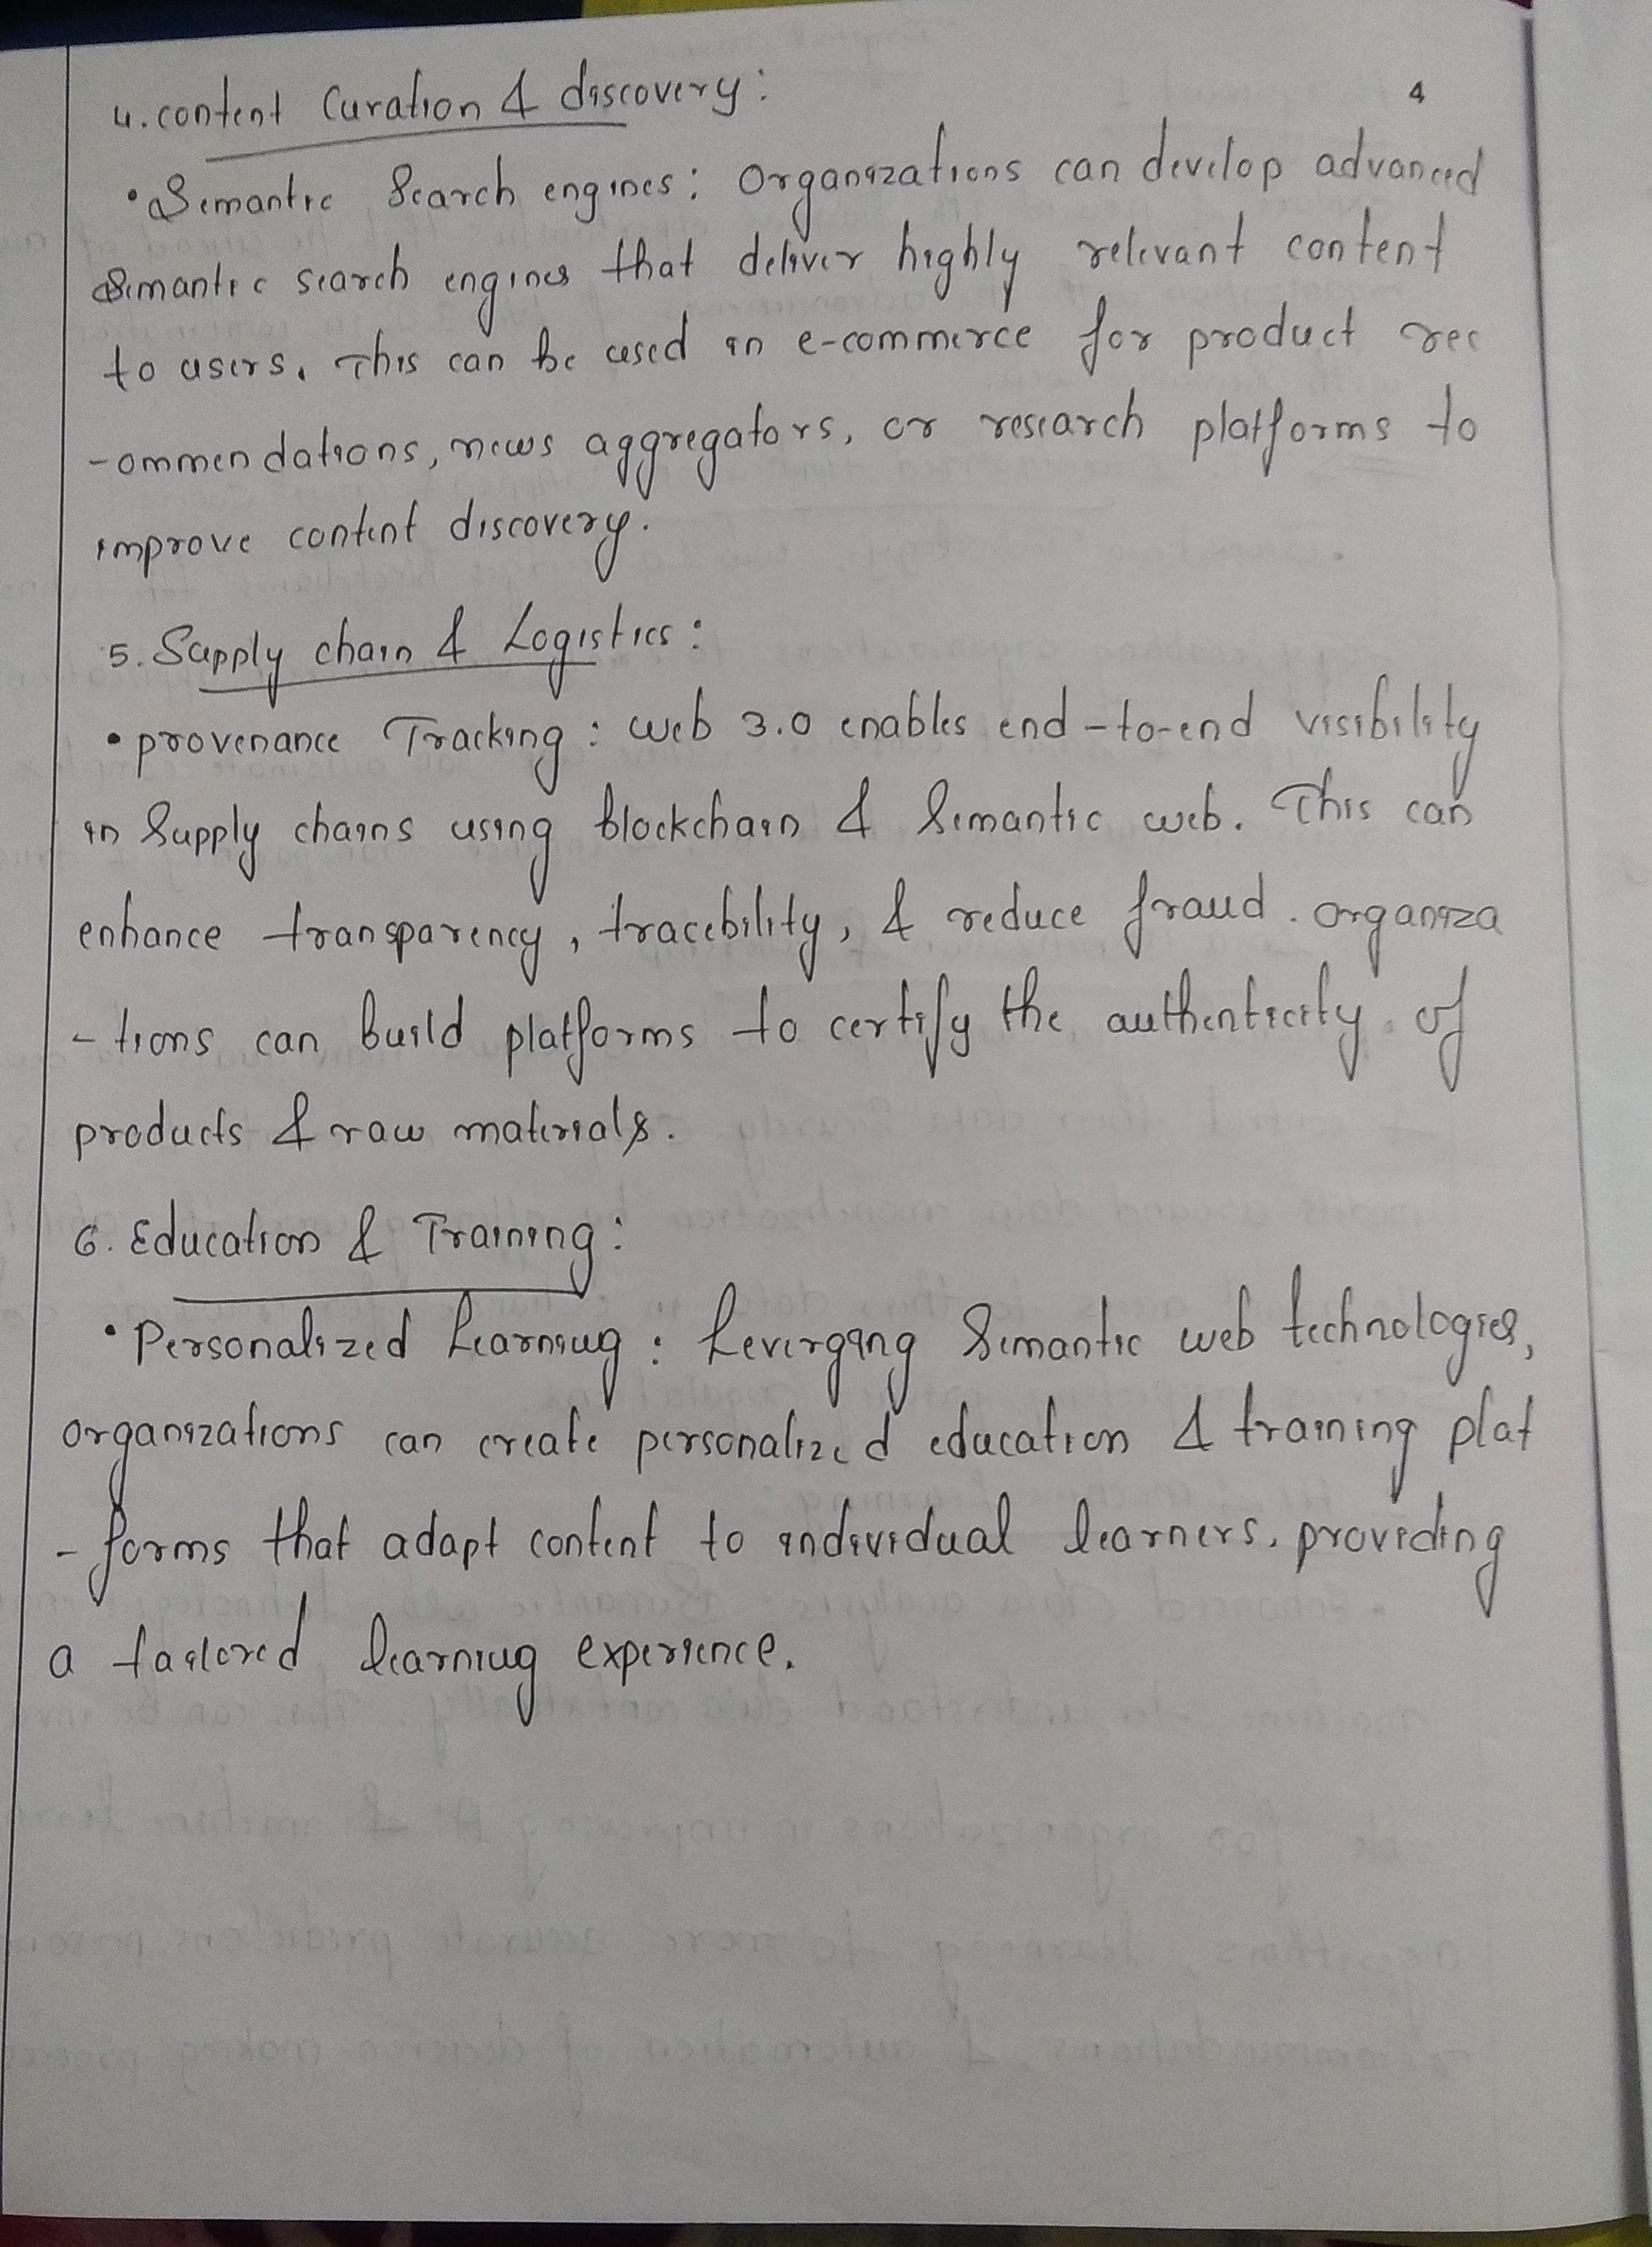 4
4. content Curation & discovery:
• Semantic Search engines: Organizations can develop advanced
Semantic search engines that deliver highly relevant content
to users. This can be used in e-commerce for product rec
-ommendations, news aggregators, or research platforms to
improve content discovery.
5. Supply chain & Logistics:
• provenance Tracking: web 3.0 enables end-to-end visibility
in Supply chains using blockchain & Semantic web. This can
enhance transparency, tracebility, & reduce fraud. organiza
-tions can build platforms to certify the authenticity of
products & raw materials.
6. Education & Training:
• Personalized Learning: Leverging Semantic web technologies,
organizations can create personalized education & training plat
-forms that adapt content to individual learners, providing
a tailored learning experience.